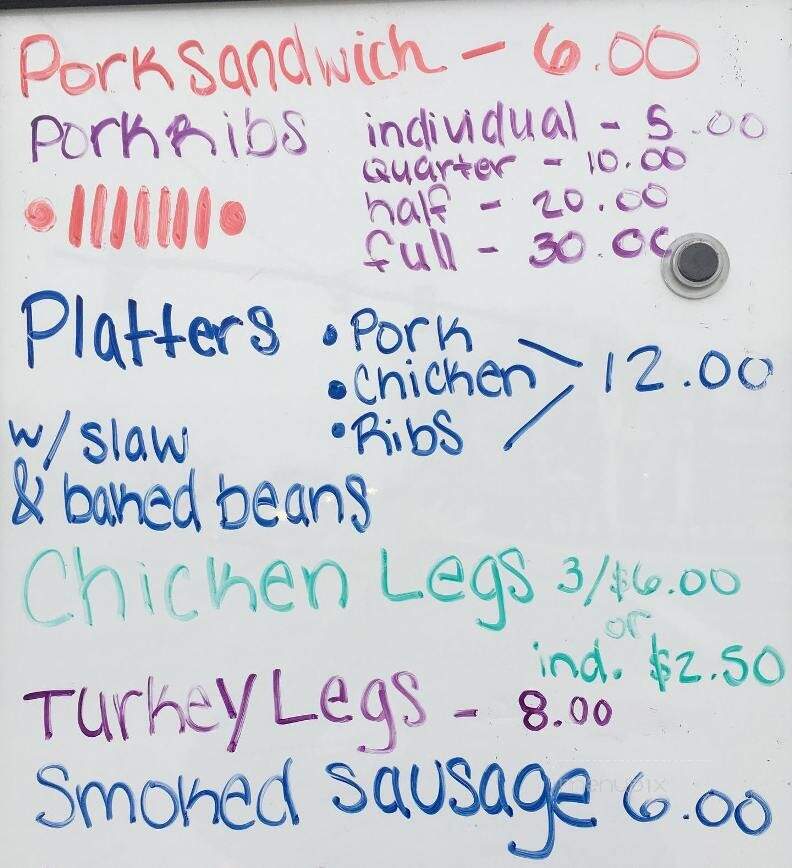 Pork Sandwich - 6.00
Pork Ribs individual - 5.00
quarter - 10.00
half - 20.00
full - 30.00
Platters • Pork
• Chicken > 12.00
• Ribs
w/ slaw
& baked beans
Chicken Legs 3/$6.00
or
ind. $2.50
Turkey Legs - 8.00
Smoked Sausage 6.00
menupix